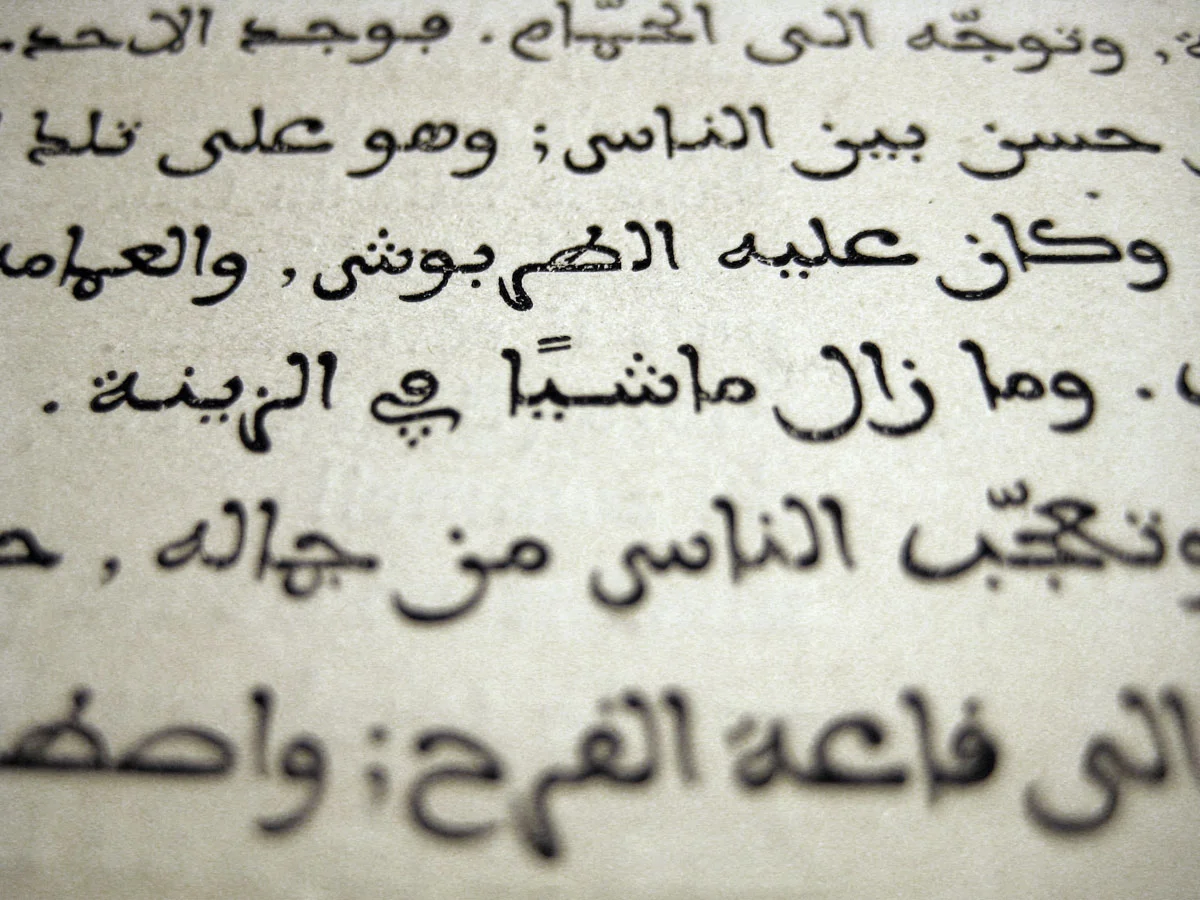 وتوجّه الى الحمّام. فوجد الاحد
حسن بين الناس; وهو على تلك
وكان عليه الطربوش, والعمامه
. وما زال ماشيًا في الزينة.
وتعجّب الناس من جماله,
الى قاعة الفرح;